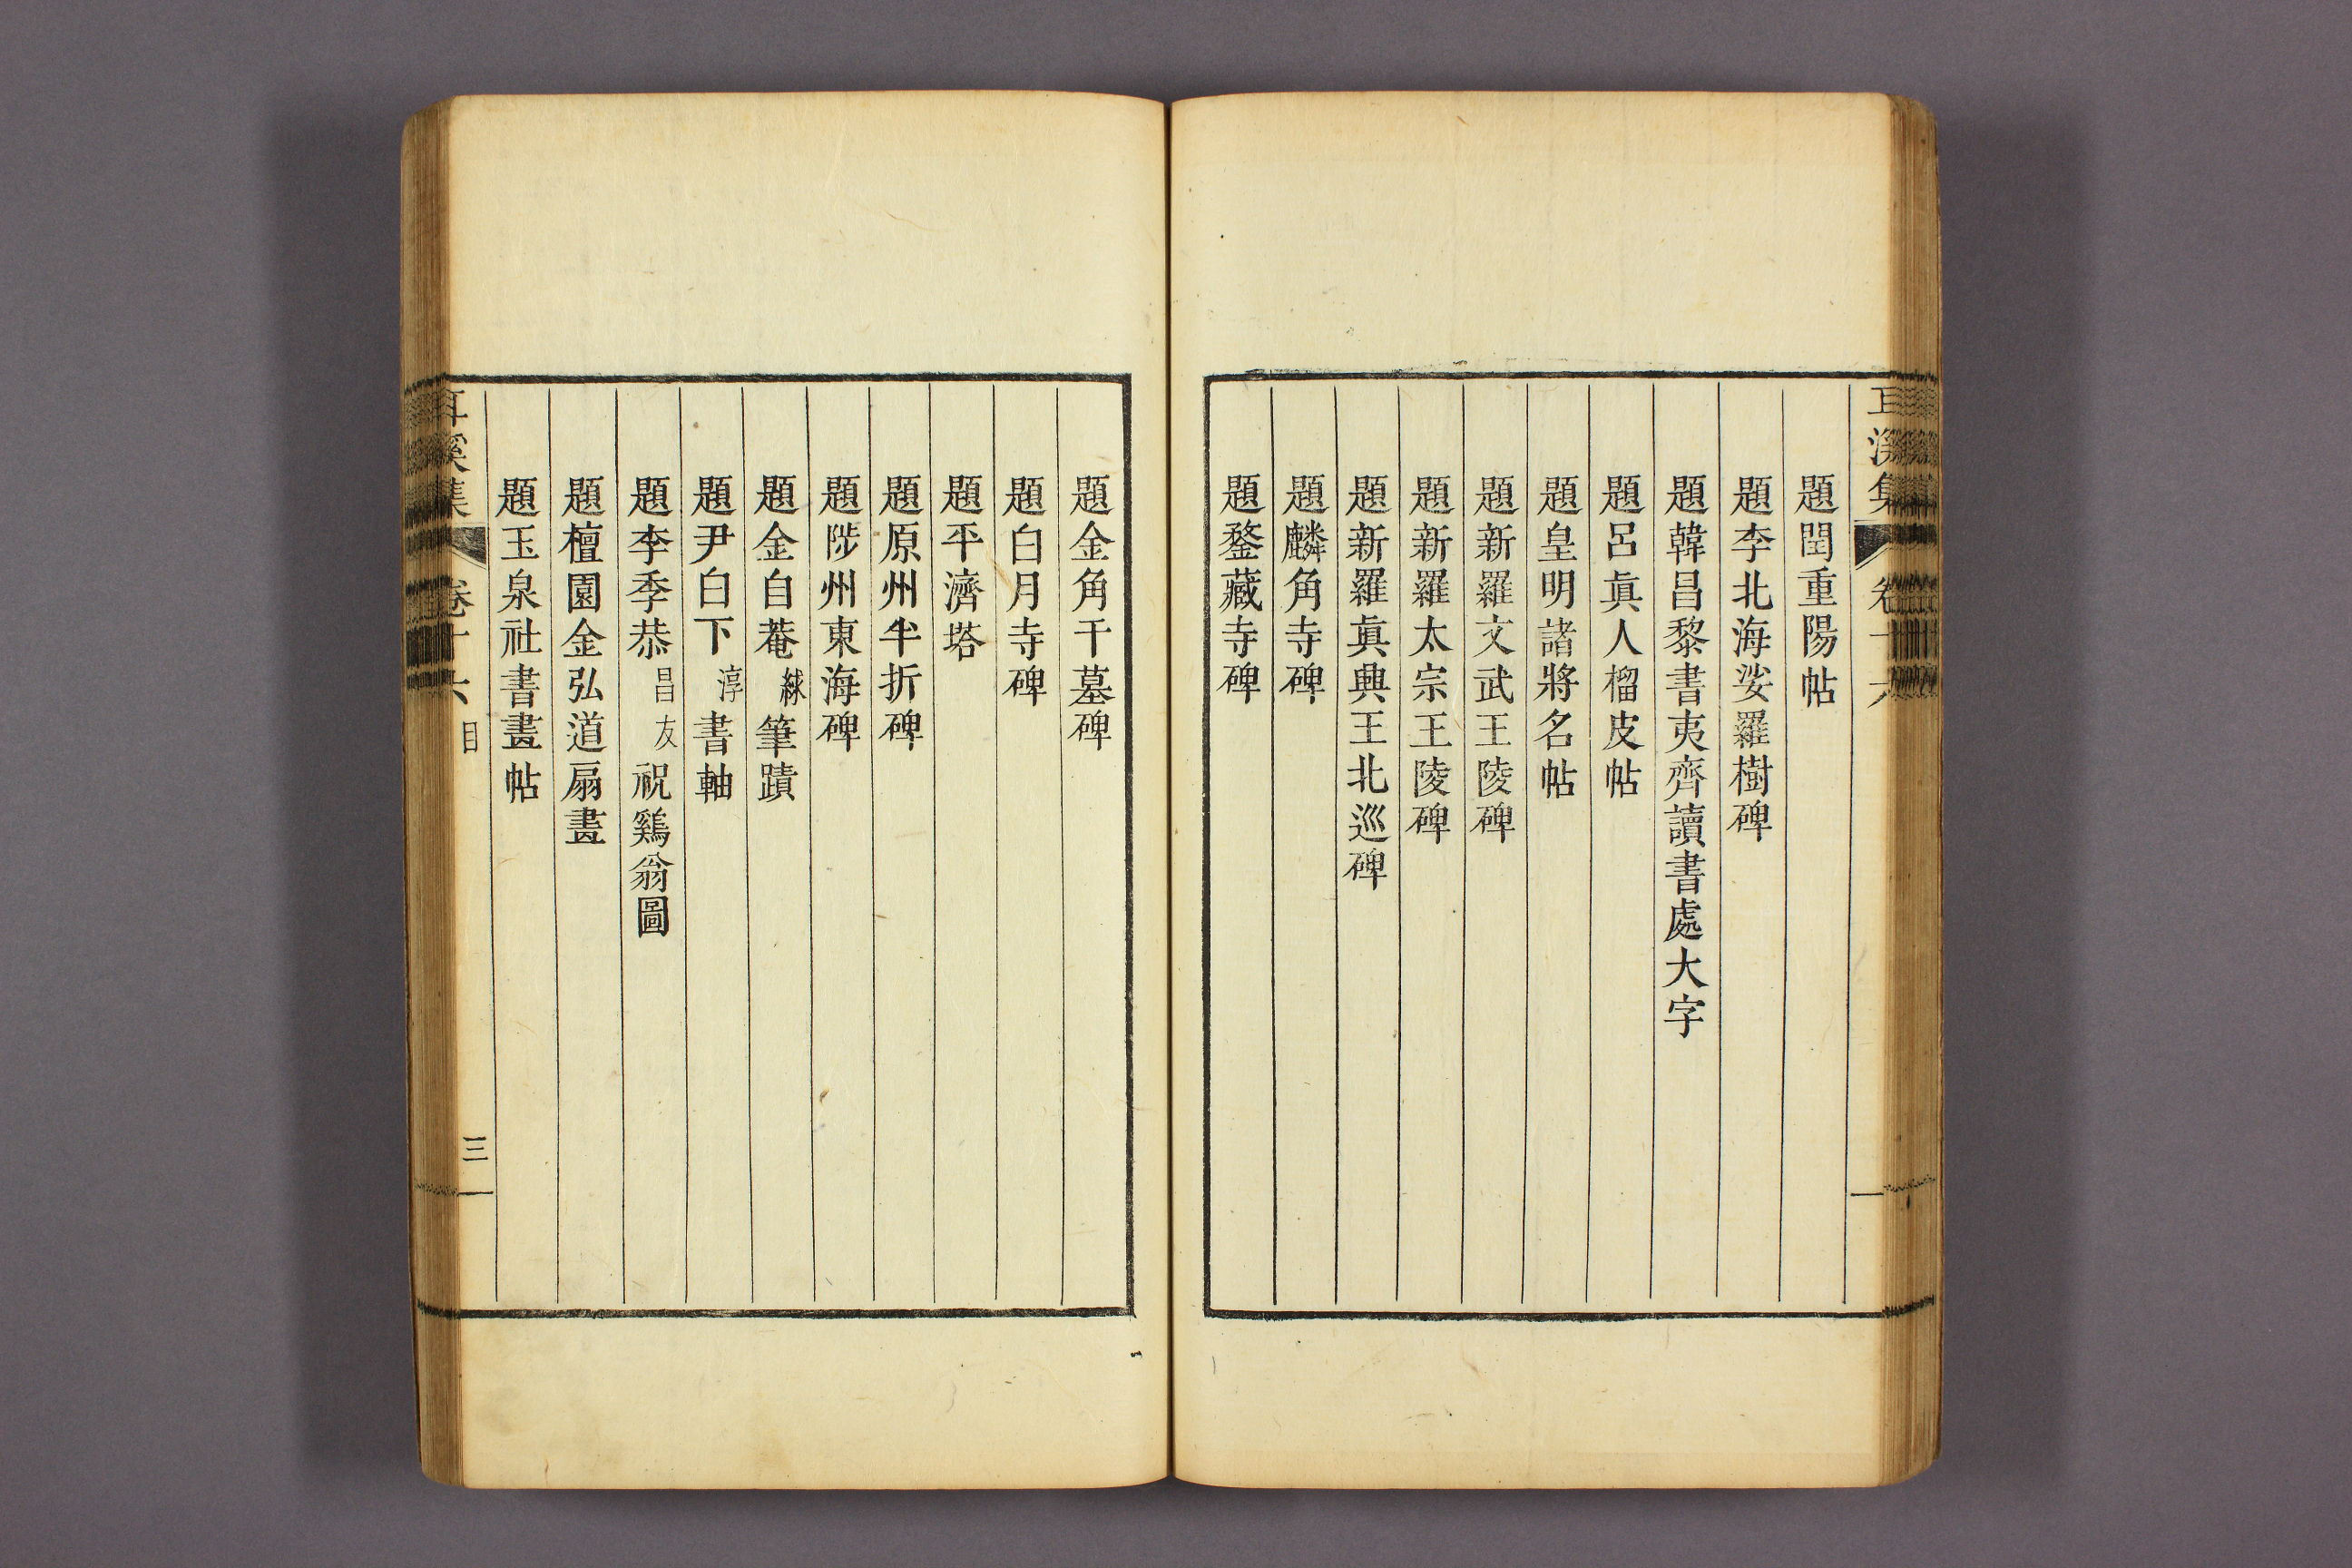 耳溪集 卷十六
題閏重陽帖
題李北海娑羅樹碑
題韓昌黎書夷齊讀書處大字
題呂眞人榴皮帖
題皇明諸將名帖
題新羅文武王陵碑
題新羅太宗王陵碑
題新羅眞興王北巡碑
題麟角寺碑
題鍪藏寺碑
題金角干墓碑
題白月寺碑
題平濟塔
題原州半折碑
題陟州東海碑
題金自菴絿筆蹟
題尹白下淳書軸
題李季恭昌友祝鷄翁圖
題檀園金弘道扇畫
題玉泉社書畫帖
耳溪集 卷十六 目 三